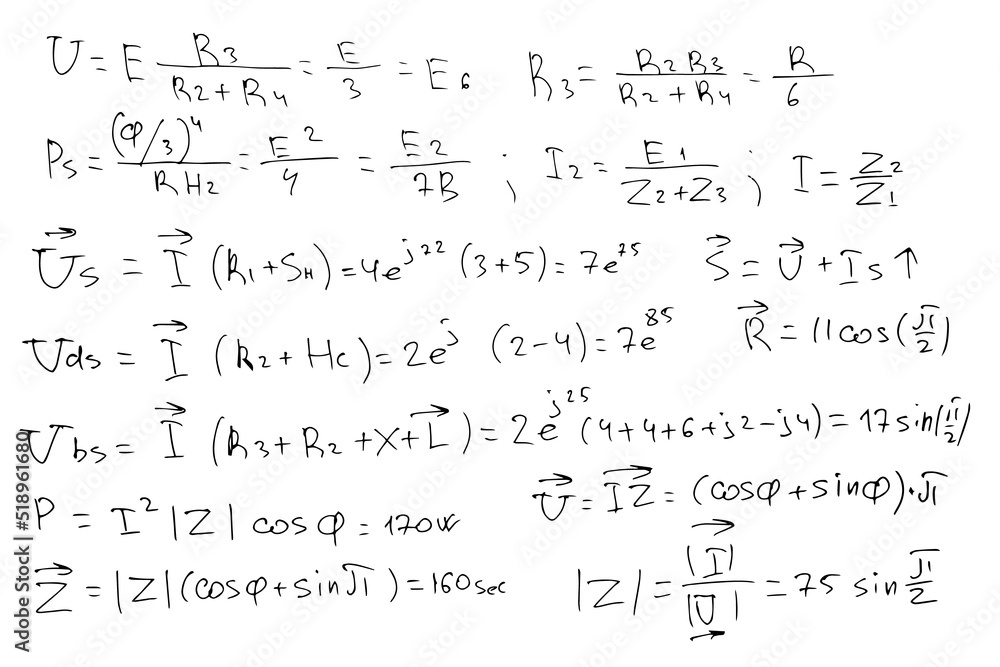 U = E R3/(R2+R4) = E/3 = E6    R3 = R2 R3/(R2+R4) = R/6
Ps = (φ/3)^4/RH2 = E^2/4 = E2/7B ; I2 = E1/(Z2+Z3) ; I = Z2/Z1
U⃗s = I⃗ (R1+SH) = 4e^j22 (3+5) = 7e^75    S⃗ = U⃗ + Is↑
Uds = I⃗ (R2+Hc) = 2e^j (2-4) = 7e^85    R⃗ = 11cos(π/2)
Ubs = I⃗ (R3+R2+X+L⃗) = 2e^j25 (4+4+6+j2-j4) = 17sin(π/2)
P = I^2 |Z| cosφ = 170W    U⃗ = I⃗Z⃗ = (cosφ+sinφ)·π
Z⃗ = |Z|(cosφ+sinπ) = 160sec    |Z| = |I⃗|/|U⃗| = 75 sin π/2
Adobe Stock | #518961680
Adobe Stock